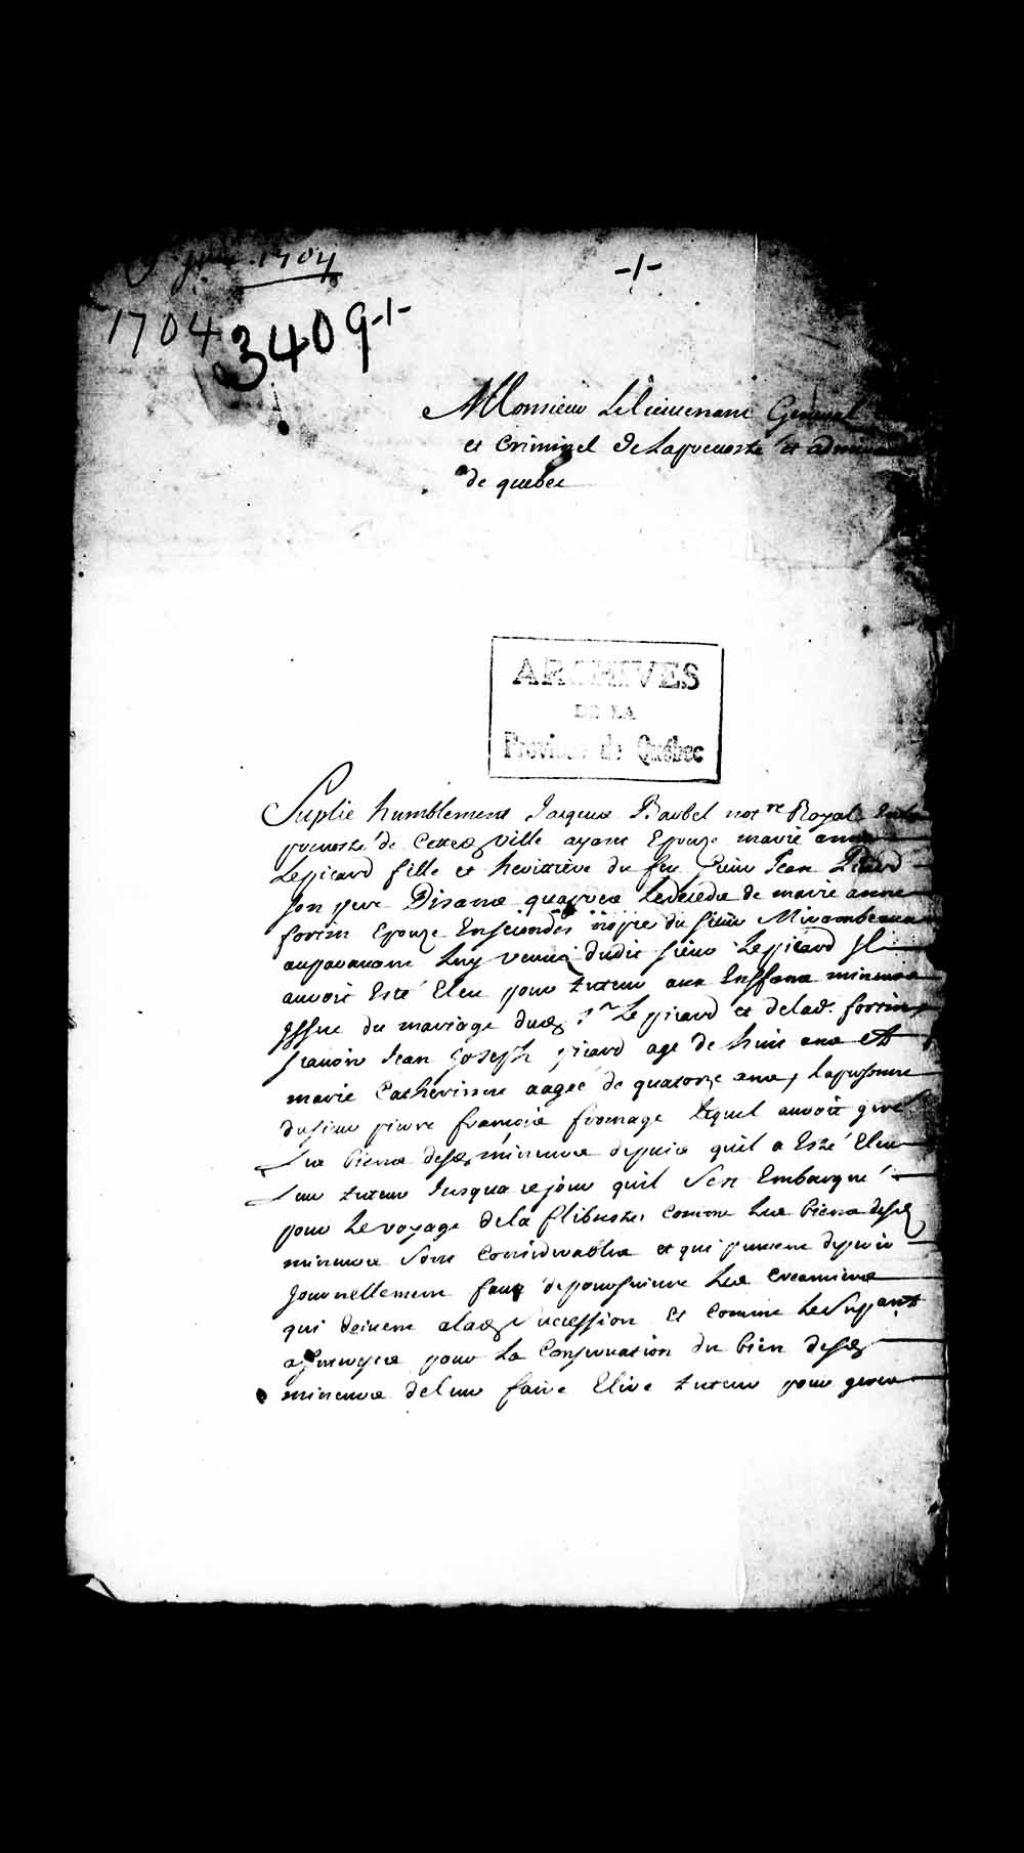 juin 1704
-1-
1704
3409-1-
Monsieur Le lieutenant General
et Criminel de La prevosté et admirau
de quebec
ARCHIVES
DE LA
Province de Québec
Suplie humblement Jacques Barbel not.re Royal En la
prevosté de Cette ville ayant Epouzé marie anne
Lepicard fille et herittiere du feu sieur Jean Picard
son pere Disant qu'apres Le deceds de marie anne
fortin Epouze En secondes nopces du sieur Mirambeaux
auparavant veuve dudit sieur Lepicard Il
auroit Esté Eleu pour tuteur aux Enffans mineurs
Issue du mariage dud. Sr Lepicard et de lad. fortin
scavoir Jean Joseph picard age de huit ans et
marie Catherinne aagée de quatorze ans, la personne
du sieur pierre françois fromage lequel auroit geré
Les biens desd. mineurs depuis quil a Esté Eleu
Leur tuteur Jusqua ce jour quil s'est Embarqué
pour Le voyage de la flibuste, comme Les biens desd.
mineurs sont considerables et qui
Journellement faute de poursuivre Les creanciers
qui doivent a lad. succession Et comme Le Supant
a pour La Conservation du bien desd.
mineurs de leur faire Elire tuteur pour gerer